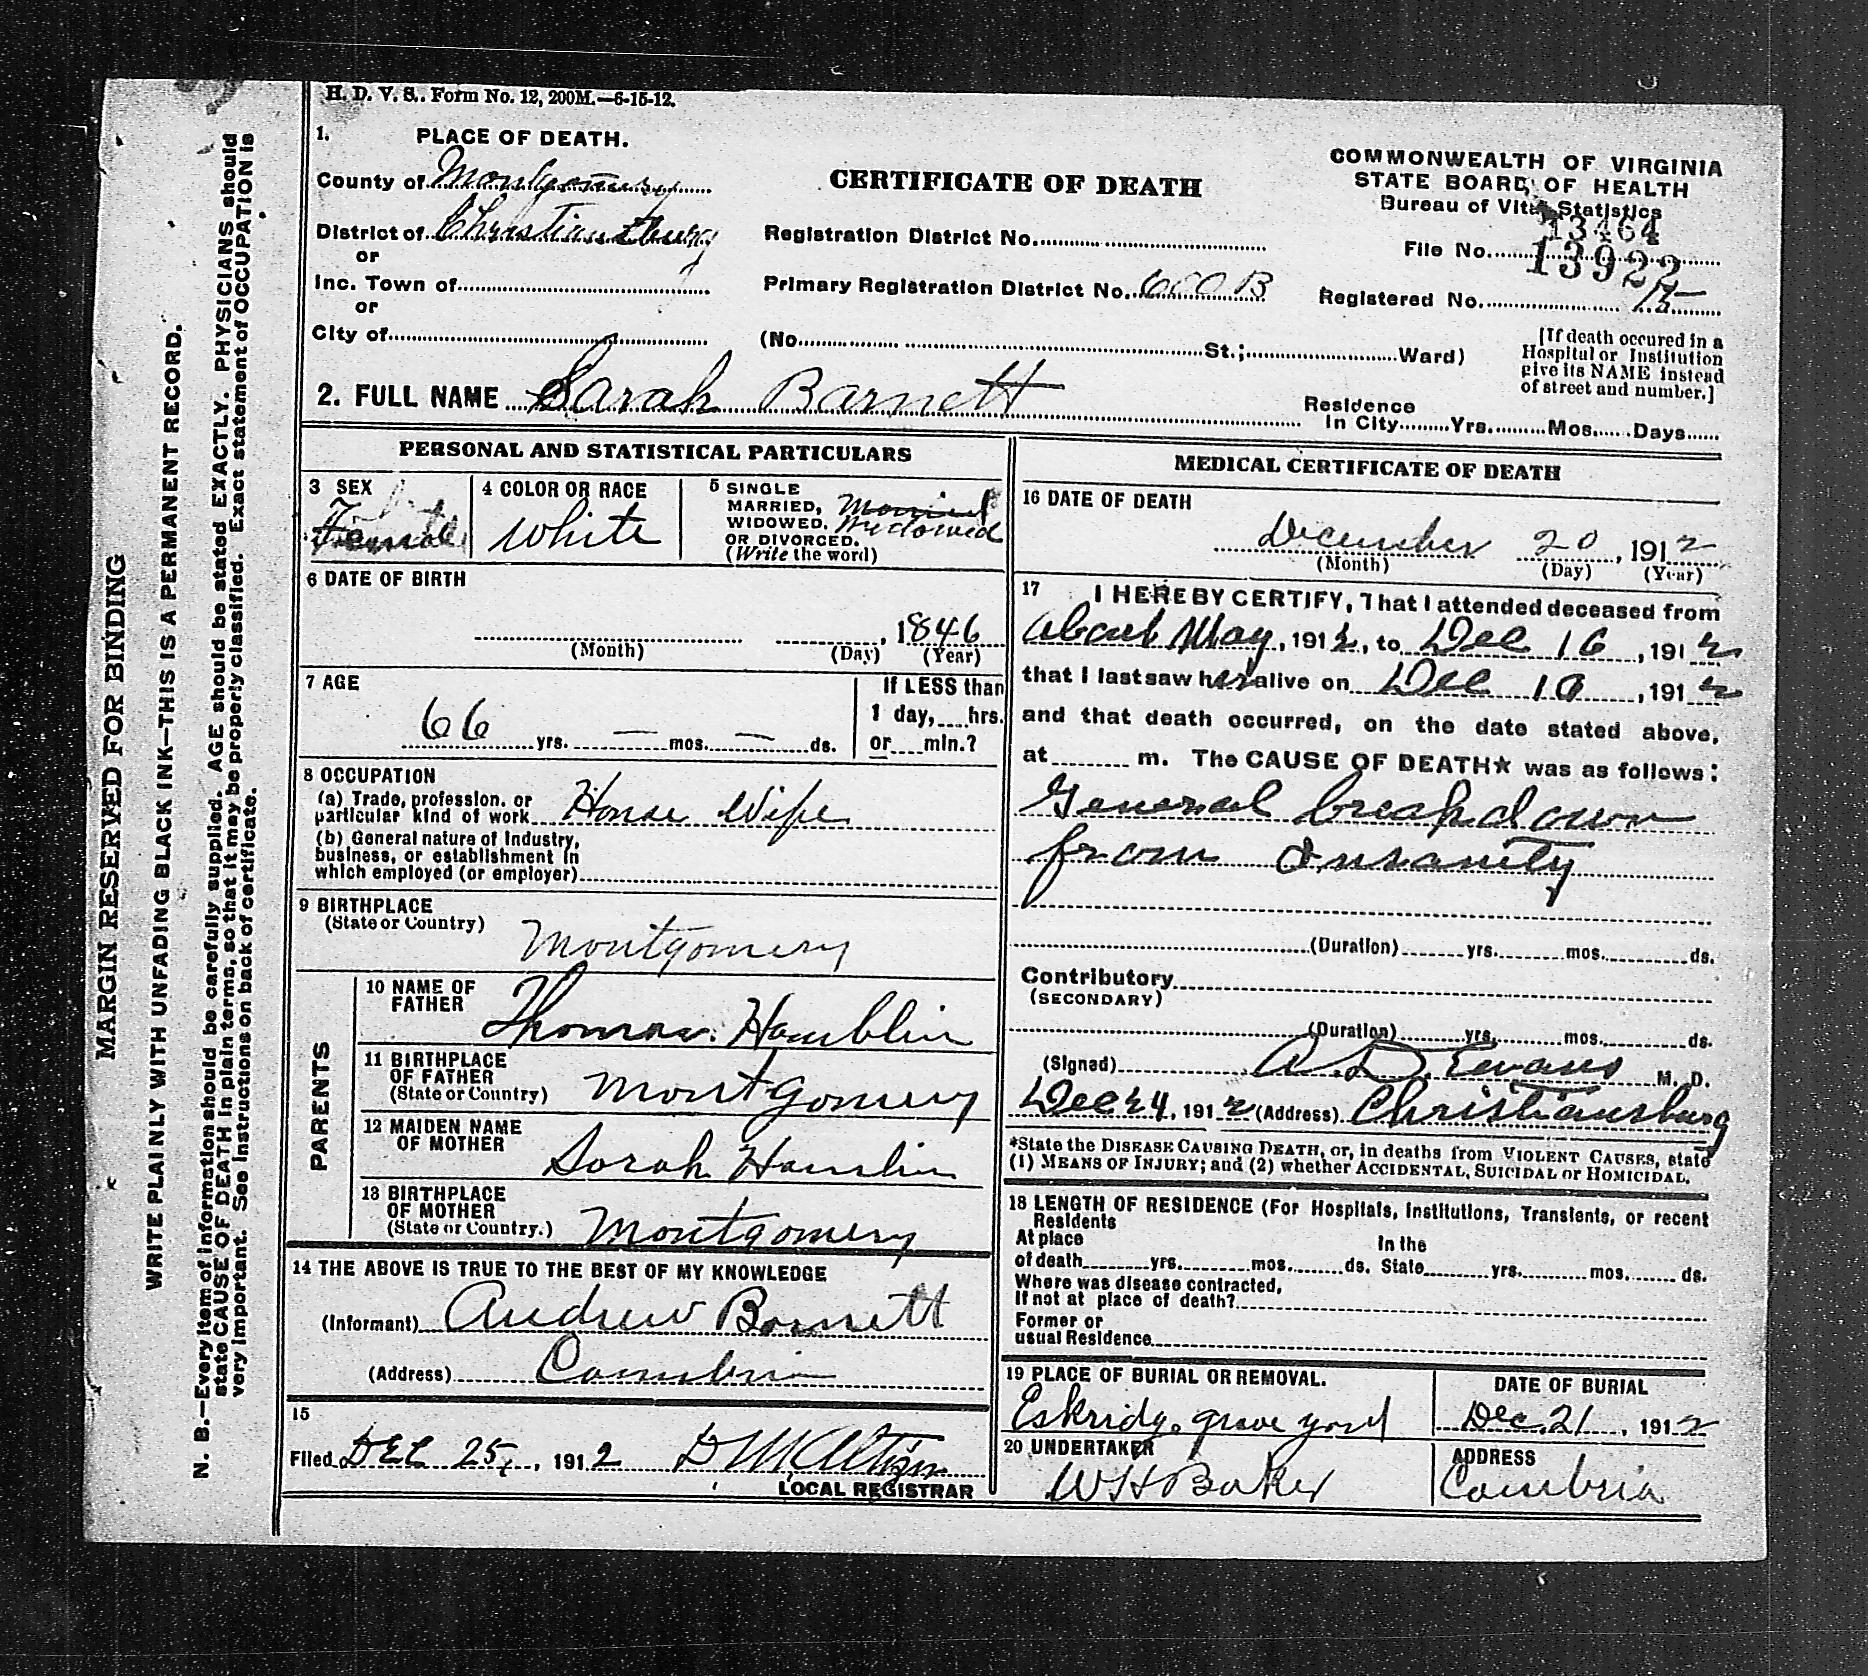 H. D. V. S.. Form No. 12, 200M.—6-15-12.
1. PLACE OF DEATH.
County of Montgomery
District of Christiansburg
or
Inc. Town of
or
City of
CERTIFICATE OF DEATH
Registration District No.
Primary Registration District No. 600 B
(No. St.; Ward)
COMMONWEALTH OF VIRGINIA
STATE BOARD OF HEALTH
Bureau of Vital Statistics
13464
File No. 13922
Registered No. 15
[If death occured in a
Hospital or Institution
give its NAME instead
of street and number.]
2. FULL NAME Sarah Barnett
Residence
in City Yrs. Mos. Days
PERSONAL AND STATISTICAL PARTICULARS
3 SEX
Female
4 COLOR OR RACE
White
5 SINGLE
MARRIED,
WIDOWED,
OR DIVORCED.
(Write the word)
Married
Widowed
6 DATE OF BIRTH
, 1846
(Month) (Day) (Year)
7 AGE
66 yrs. — mos. — ds.
If LESS than
1 day, hrs.
or min.?
8 OCCUPATION
(a) Trade, profession, or
particular kind of work House Wife
(b) General nature of Industry,
business, or establishment in
which employed (or employer)
9 BIRTHPLACE
(State or Country)
Montgomery
PARENTS
10 NAME OF
FATHER
Thomas Hamblin
11 BIRTHPLACE
OF FATHER
(State or Country)
Montgomery
12 MAIDEN NAME
OF MOTHER
Sarah Hamlin
13 BIRTHPLACE
OF MOTHER
(State or Country.)
Montgomery
14 THE ABOVE IS TRUE TO THE BEST OF MY KNOWLEDGE
(Informant) Andrew Barnett
(Address) Cambria
15
Filed DEC 25, , 1912 D M Altizer
LOCAL REGISTRAR
MEDICAL CERTIFICATE OF DEATH
16 DATE OF DEATH
December 20 , 1912
(Month) (Day) (Year)
17 I HEREBY CERTIFY, That I attended deceased from
about May, 1912, to Dec 16 , 1912
that I last saw her alive on Dec 10 , 1912
and that death occurred, on the date stated above,
at m. The CAUSE OF DEATH★ was as follows:
General breakdown
from Insanity
(Duration) yrs. mos. ds.
Contributory
(SECONDARY)
(Duration) yrs. mos. ds.
(Signed) A. D. Evans M. D.
Dec 24, 1912 (Address) Christiansburg
*State the DISEASE CAUSING DEATH, or, in deaths from VIOLENT CAUSES, state
(1) MEANS OF INJURY; and (2) whether ACCIDENTAL, SUICIDAL or HOMICIDAL.
18 LENGTH OF RESIDENCE (For Hospitals, Institutions, Transients, or recent
Residents
At place In the
of death yrs. mos. ds. State yrs. mos. ds.
Where was disease contracted,
If not at place of death?
Former or
usual Residence
19 PLACE OF BURIAL OR REMOVAL.
Eskridg. grave yard
DATE OF BURIAL
Dec. 21 , 1912
20 UNDERTAKER
W H Baker
ADDRESS
Cambria
MARGIN RESERVED FOR BINDING
WRITE PLAINLY WITH UNFADING BLACK INK—THIS IS A PERMANENT RECORD.
N. B.—Every item of information should be carefully supplied. AGE should be stated EXACTLY. PHYSICIANS should
state CAUSE OF DEATH in plain terms, so that it may be properly classified. Exact statement of OCCUPATION is
very important. See instructions on back of certificate.